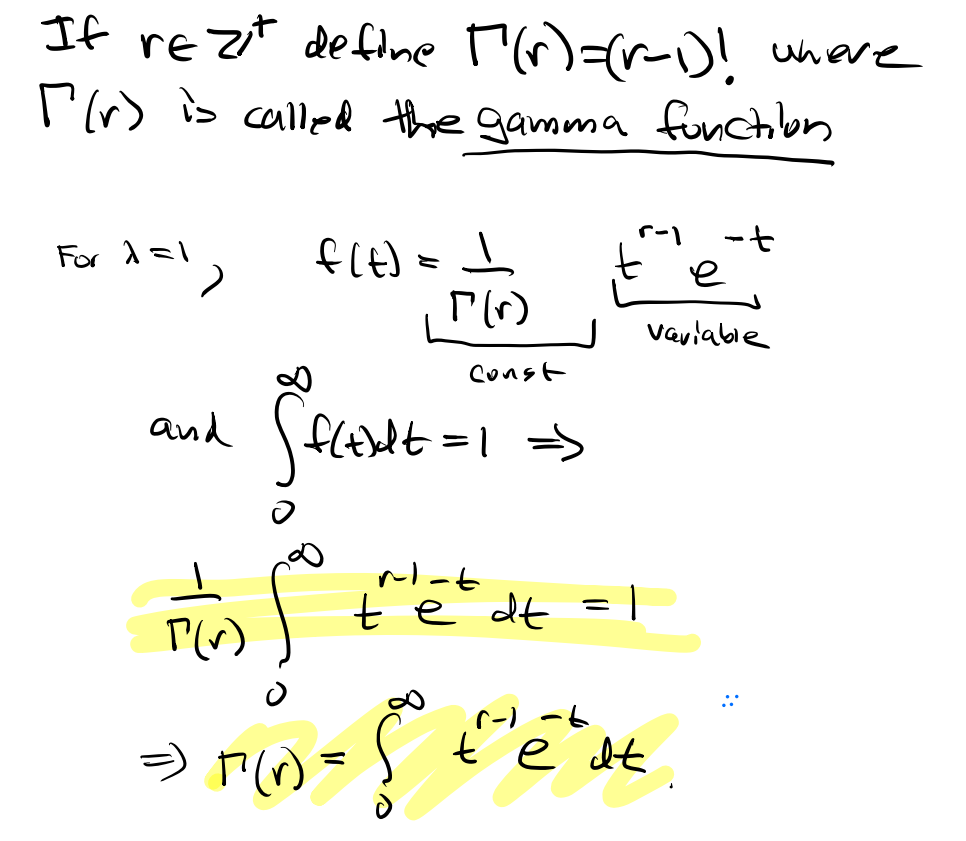 If r ∈ ℤ⁺ define Γ(r)=(r-1)! where
Γ(r) is called the gamma function
For λ=1, f(t) = 1/Γ(r) t^(r-1) e^(-t)
const variable
and ∫₀^∞ f(t)dt = 1 ⇒
1/Γ(r) ∫₀^∞ t^(r-1) e^(-t) dt = 1
⇒ Γ(r) = ∫₀^∞ t^(r-1) e^(-t) dt.